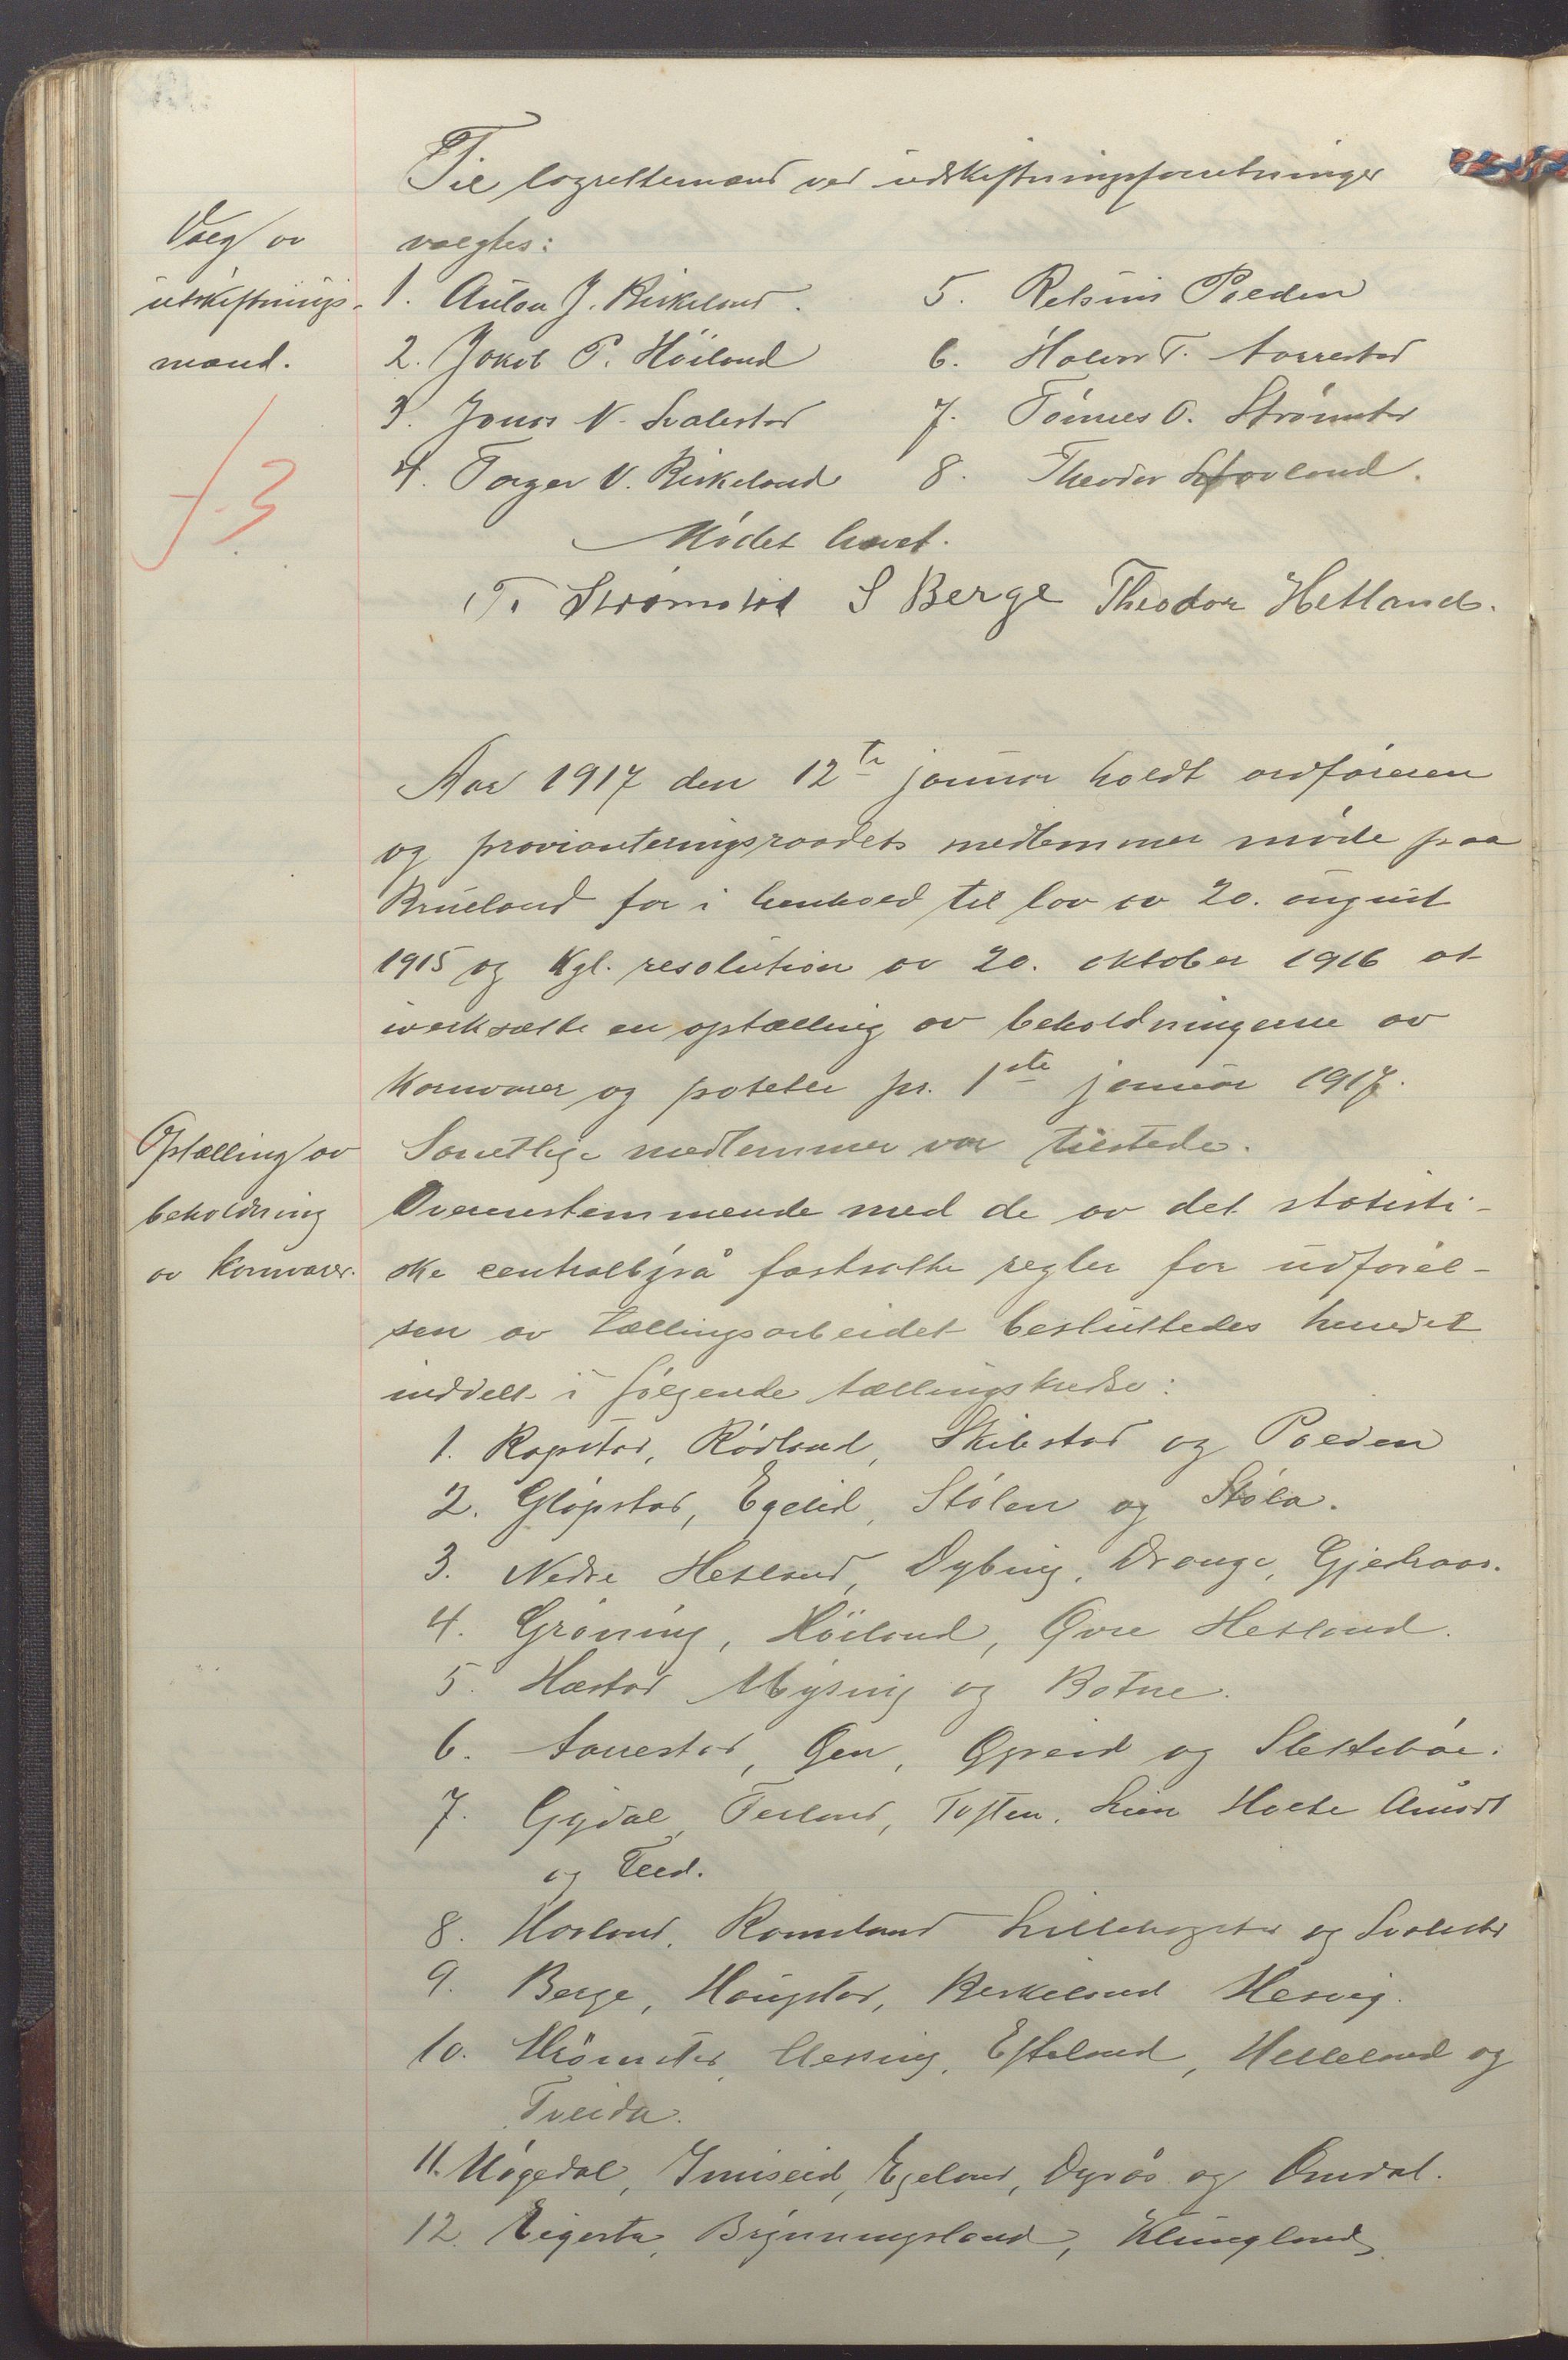 Til lagrettemænd ved utskiftningsforretninger
Valg av
utskiftnings-
mænd.
valgtes:
1. Anton J. Birkeland.
2. Jakob P. Høiland
3. Jonas N. Svalestad
4. Torger V. Birkeland
5. Retsius Poeden
6. Halvor T. Aarrestad
7. Tønnes O. Strømstad
8. Theodor Hovland.
f. 3
Mødet hævet.
T. Strømstad S Berge Theodor Hetland.
Aar 1917 den 12te januar holdt ordføreren
og provianteringsraadets medlemmer møde paa
Brueland for i henhold til lov av 20. august
1915 og Kgl. resolution av 20. oktober 1916 at
iverksætte en optælling av beholdningerne av
kornvarer og poteter pr. 1ste januar 1917.
Optælling av
beholdning
av kornvarer.
Samtlige medlemmer var tilstede.
Overenstemmende med de av det statisti-
ske centralbyrå fastsatte regler for utførel-
sen av tællingsarbeidet besluttedes herredet
inddelt i følgende tællingskredse:
1. Rapstad, Rødland, Skibstad og Poeden
2. Gløpstad, Egelid, Stølen og Støla.
3. Nedre Hetland, Dybing, Drange, Gjedraas.
4. Grøning, Høiland, Øvre Hetland.
5. Hæstad Mysing og Botne.
6. Aarrestad, Øen, Øgreid og Slettebøe.
7. Gydal, Terland, Toften, LienHolte Åmodt
og Teed.
8. Hovland, Ramsland Lillehogstad og Svalestad
9. Berge, Haugstad, Birkeland Hesvig.
10. Strømstad, Uessing, Efteland, Helleland og
Tveida.
11. Møgedal, Imiseid, Egeland, Dyrås og Omdal.
12. Eigesta, Brynningsland, Klungland